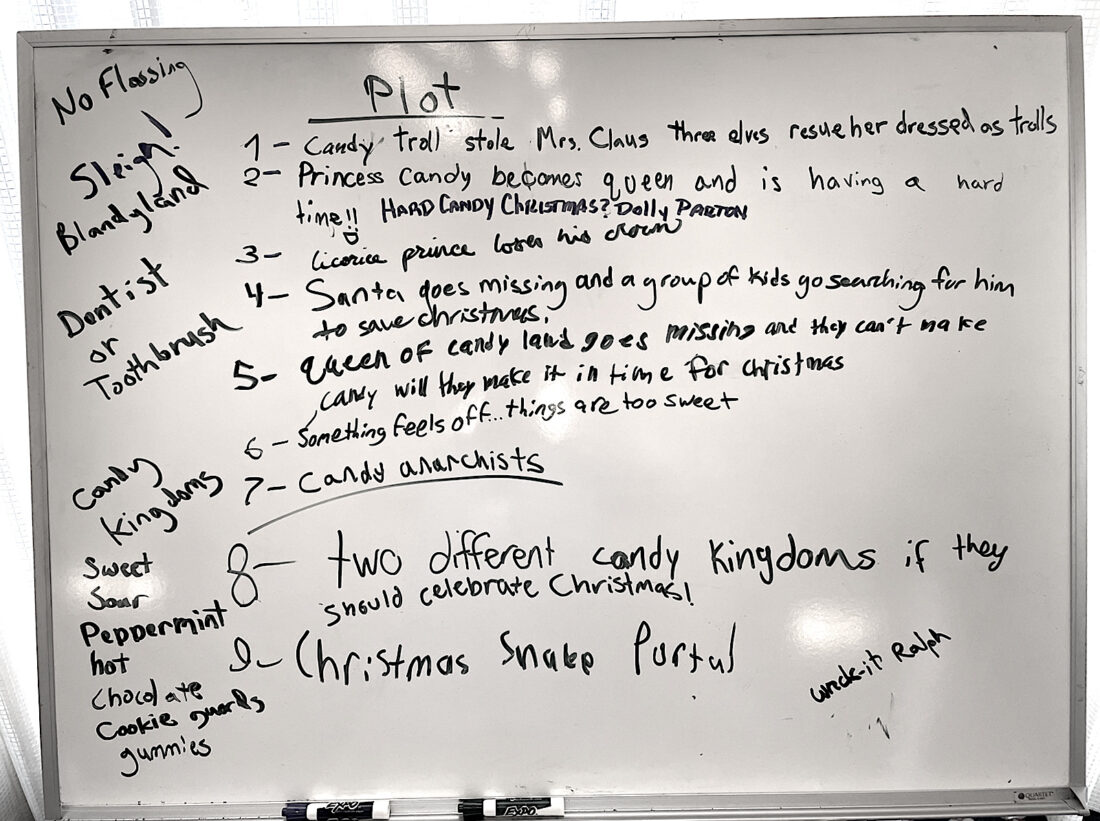 No Flossing
Sleigh!
Blandyland
Dentist
or
Toothbrush
Candy
Kingdoms
Sweet
Sour
Peppermint
hot
Chocolate
Cookie guards
gummies
Plot
1- Candy troll stole Mrs. Claus three elves resue her dressed as trolls
2- Princess Candy becomes queen and is having a hard
time!! HARD CANDY CHRISTMAS? Dolly PARTON
3- licorice prince loses his crown
4- Santa goes missing and a group of kids go searching for him
to save christmas.
5- queen of candy land goes missing and they can't make
candy will they make it in time for christmas
6- Something feels off...things are too sweet
7- Candy anarchists
8- two different candy kingdoms if they
should celebrate Christmas!
9- Christmas Snake Portal
wreck-it Ralph
EXPO
EXPO
QUARTET